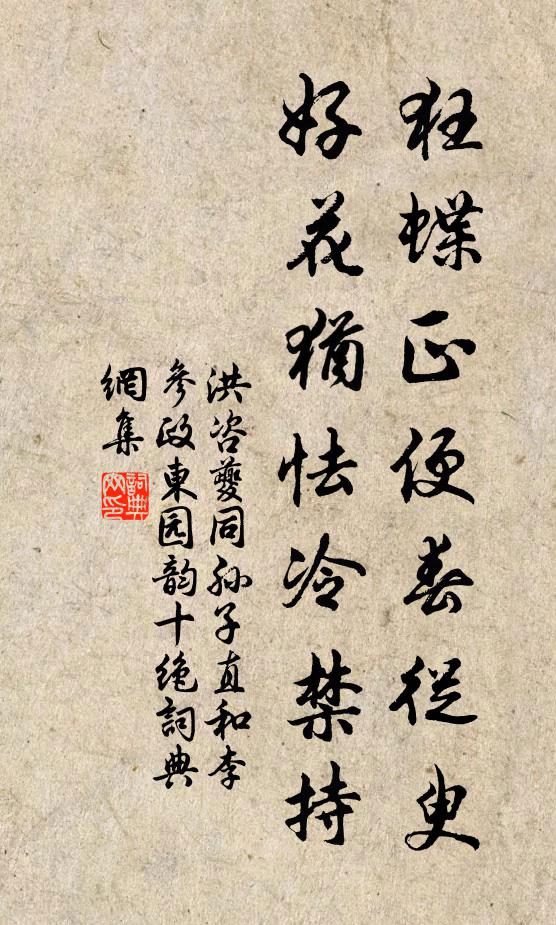 狂蝶正便春從臾
好花猶怯冷禁持
洪咨夔同孙子直和李
參政東园韵十绝詞典
網集
詞典网印